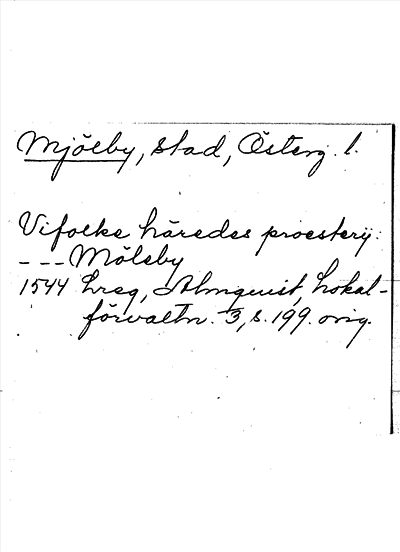 Mjölby, stad, Österg. l.
Vifolke häredes proestery:
--- Möleby
1544 Lreg, Almquist, Lokal-
förvaltn. 3, s. 199. orig.